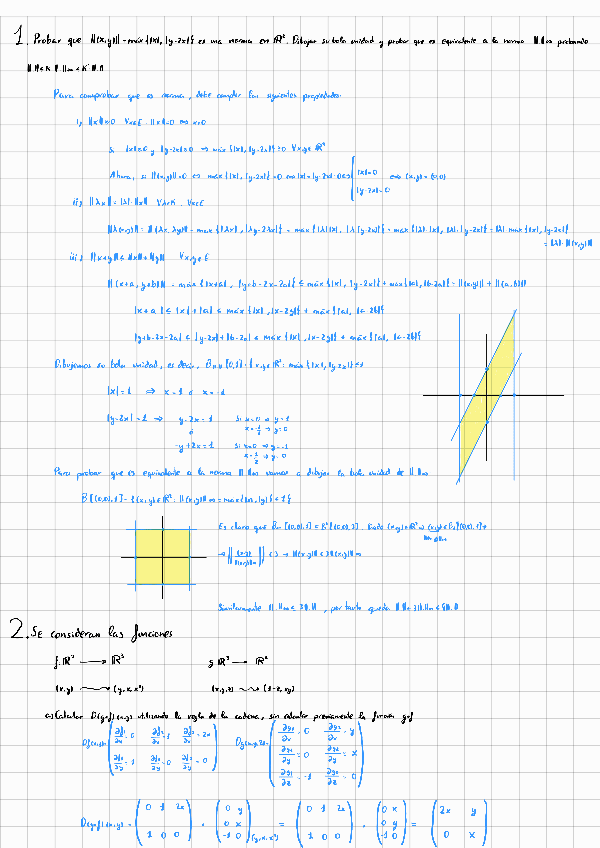 1. Probar que ||(x,y)|| = máx{|x|, |y-2x|} es una norma en R². Dibujar su bola unidad y probar que es equivalente a la norma || ||∞ probando
Para comprobar que es norma, debe cumplir las siguientes propiedades:
i) ||x|| ≥ 0 ∀x∈E. ||x||=0 ⇔ x=0
Si |x|≥0 y |y-2x|≥0 → máx{|x|, |y-2x|} ≥ 0 ∀x,y∈R²
Ahora, si ||(x,y)||=0 ⇔ máx{|x|, |y-2x|}=0 |x|=|y-2x|=0 ⇔ { |x|=0 |y-2x|=0 ⇔ (x,y)=(0,0)
ii) ||λx|| = |λ|·||x|| ∀λ∈K, ∀x∈E
||λ(x,y)|| = ||(λx, λy)|| = máx{|λx|, |λy-2λx|} = máx{|λ||x|, |λ||y-2x|} = máx{|λ|·|x|, |λ|·|y-2x|} = |λ|·máx{|x|, |y-2x|}
= |λ|·||(x,y)||
iii) ||x+y|| ≤ ||x||+||y|| ∀x,y∈E
||(x+a, y+b)|| = máx{|x+a|, |y+b-2x-2a|} ≤ máx{|x|, |y-2x|} + máx{|a|, |b-2a|} = ||(x,y)|| + ||(a,b)||
|x+a| ≤ |x|+|a| ≤ máx{|x|, |x-2y|} + máx{|a|, |a-2b|}
|y+b-2x-2a| ≤ |y-2x|+|b-2a| ≤ máx{|x|, |x-2y|} + máx{|a|, |a-2b|}
Dibujemos su bola unidad, es decir, B|| ||[0,1]={x,y∈R²: máx{|x|, |y-2x|} ≤1
|x|=1 → x=1 ó x=-1
|y-2x|=1 → y-2x=1 Si x=0 → y=1
ó
-y+2x=1 Si x=0 → y=-1
Para probar que es equivalente a la norma ||.||∞ vamos a dibujar la bola unidad de ||.||∞
B[(0,0),1]={(x,y)∈R²: ||(x,y)||∞=max{|x|,|y|}≤1}
Similarmente ||.||∞ ≤ 3||.||, por tanto queda
2. Se consideran las funciones
f: R² → R³ g: R³ → R²
(x,y) → (y,x,x²) (x,y,z) → (1-z, xy)
a) Calcular D(g∘f)(x,y) utilizando la regla de la cadena, sin calcular previamente la función g∘f
Df(x,y)=( ∂f1/∂x=0 ∂f2/∂x=1 ∂f3/∂x=2x Dg(x,y,z)=( ∂g1/∂x=0 ∂g2/∂x=y
∂g1/∂y=0 ∂g2/∂y=x
∂f1/∂y=1 ∂f2/∂y=0 ∂f3/∂y=0 ) ∂g1/∂z=-1 ∂g2/∂z=0 )
0 1 2x 0 y 0 1 2x 0 x 2x y
D(g∘f)(x,y)= · 0 x = · 0 y =
1 0 0 -1 0 (y,x,x²) 1 0 0 -1 0 0 x